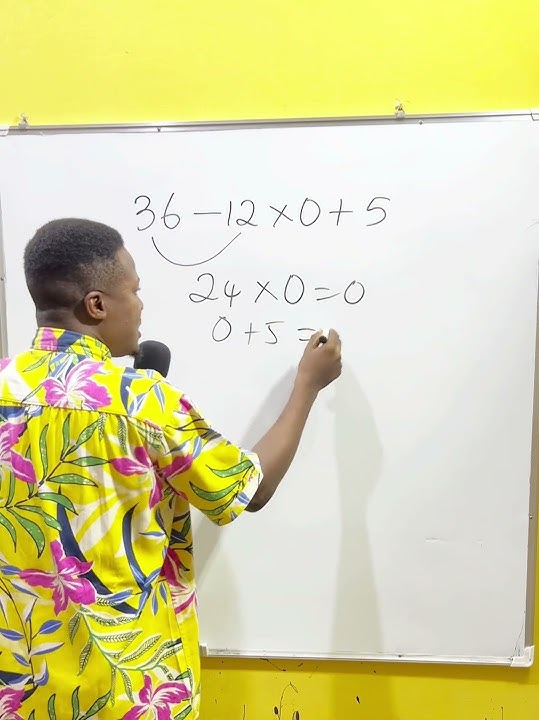 36 − 12 × 0 + 5
24 × 0 = 0
0 + 5 =